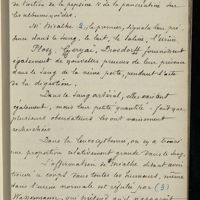 l'action de la pepsine & de la pancréatine sur
les albuminoïdes.
M. Mialhe, le premier, signala leur pré-
sence dans le sang, le lait, la salive, l'urine
Plosz, Gyergai, Drosdorff fournirent
également de nouvelles preuves de leur présence
dans le sang de la veine porte, pendant l'acte
de la digestion.
Dans le sang artériel, elles existent
également, mais leur petite quantité fait que
plusieurs observateurs les ont vainement
recherchées
Dans la leucocythémie, on y a trouvé
une proportion relativement grande dans le sang.
L'affirmation de Mialhe disant avoir
trouvé ce corps dans toutes les humeurs, même
dans l'urine normale est réfutée par (3)
Wassermann, qui prétend que